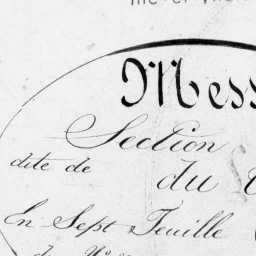 Mess
Section
dite de
du
En Sept Feuille